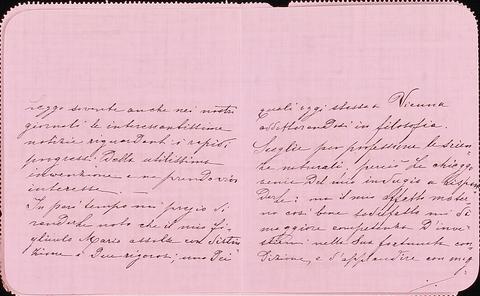 leggo sovente anche nei nostri
giornali le interessantissime
notizie riguardanti i rapidi
progressi. Della utilissima
invenzione e ne prendo vivo
interesse. —
In pari tempo mi pregio di
renderle noto che il mio fi-
gliuolo Mario assolse con distin
zione i Due rigorosi; uno Dei
quali oggi stesso a Vienna
addottorandosi in filosofia.
Scelse per professione le scien
ze naturali, perciò Le chieggo
venia Del mio indugio a rispon
derle: ma il mio affetto mater
no così bene soddisfatto mi dà
maggiore competenza D'inve
nella Sua fortunata con
Dizione, e d'apprendere con mag